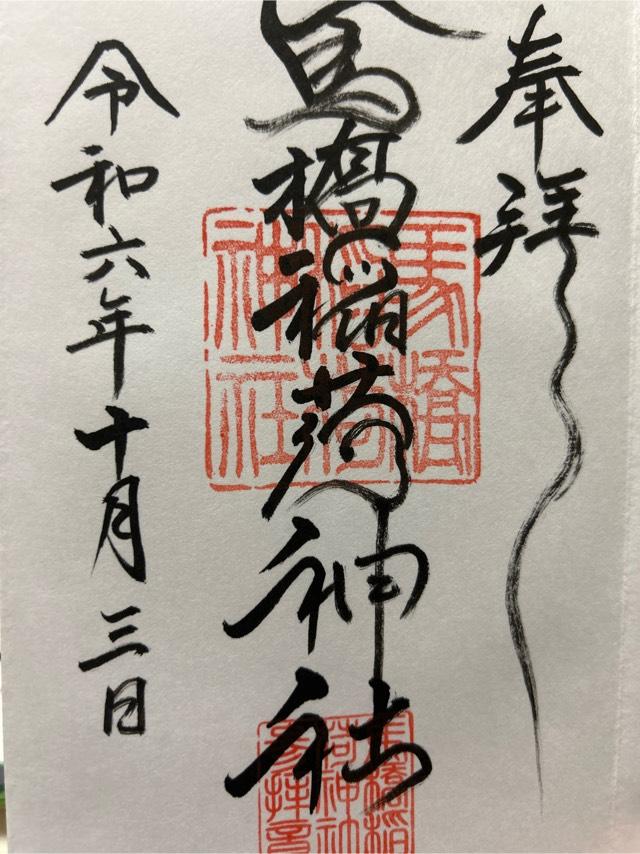 奉拝
馬橋稲荷神社
令和六年十月三日
馬橋
稲荷
神社
馬橋稲
荷神社
参拝